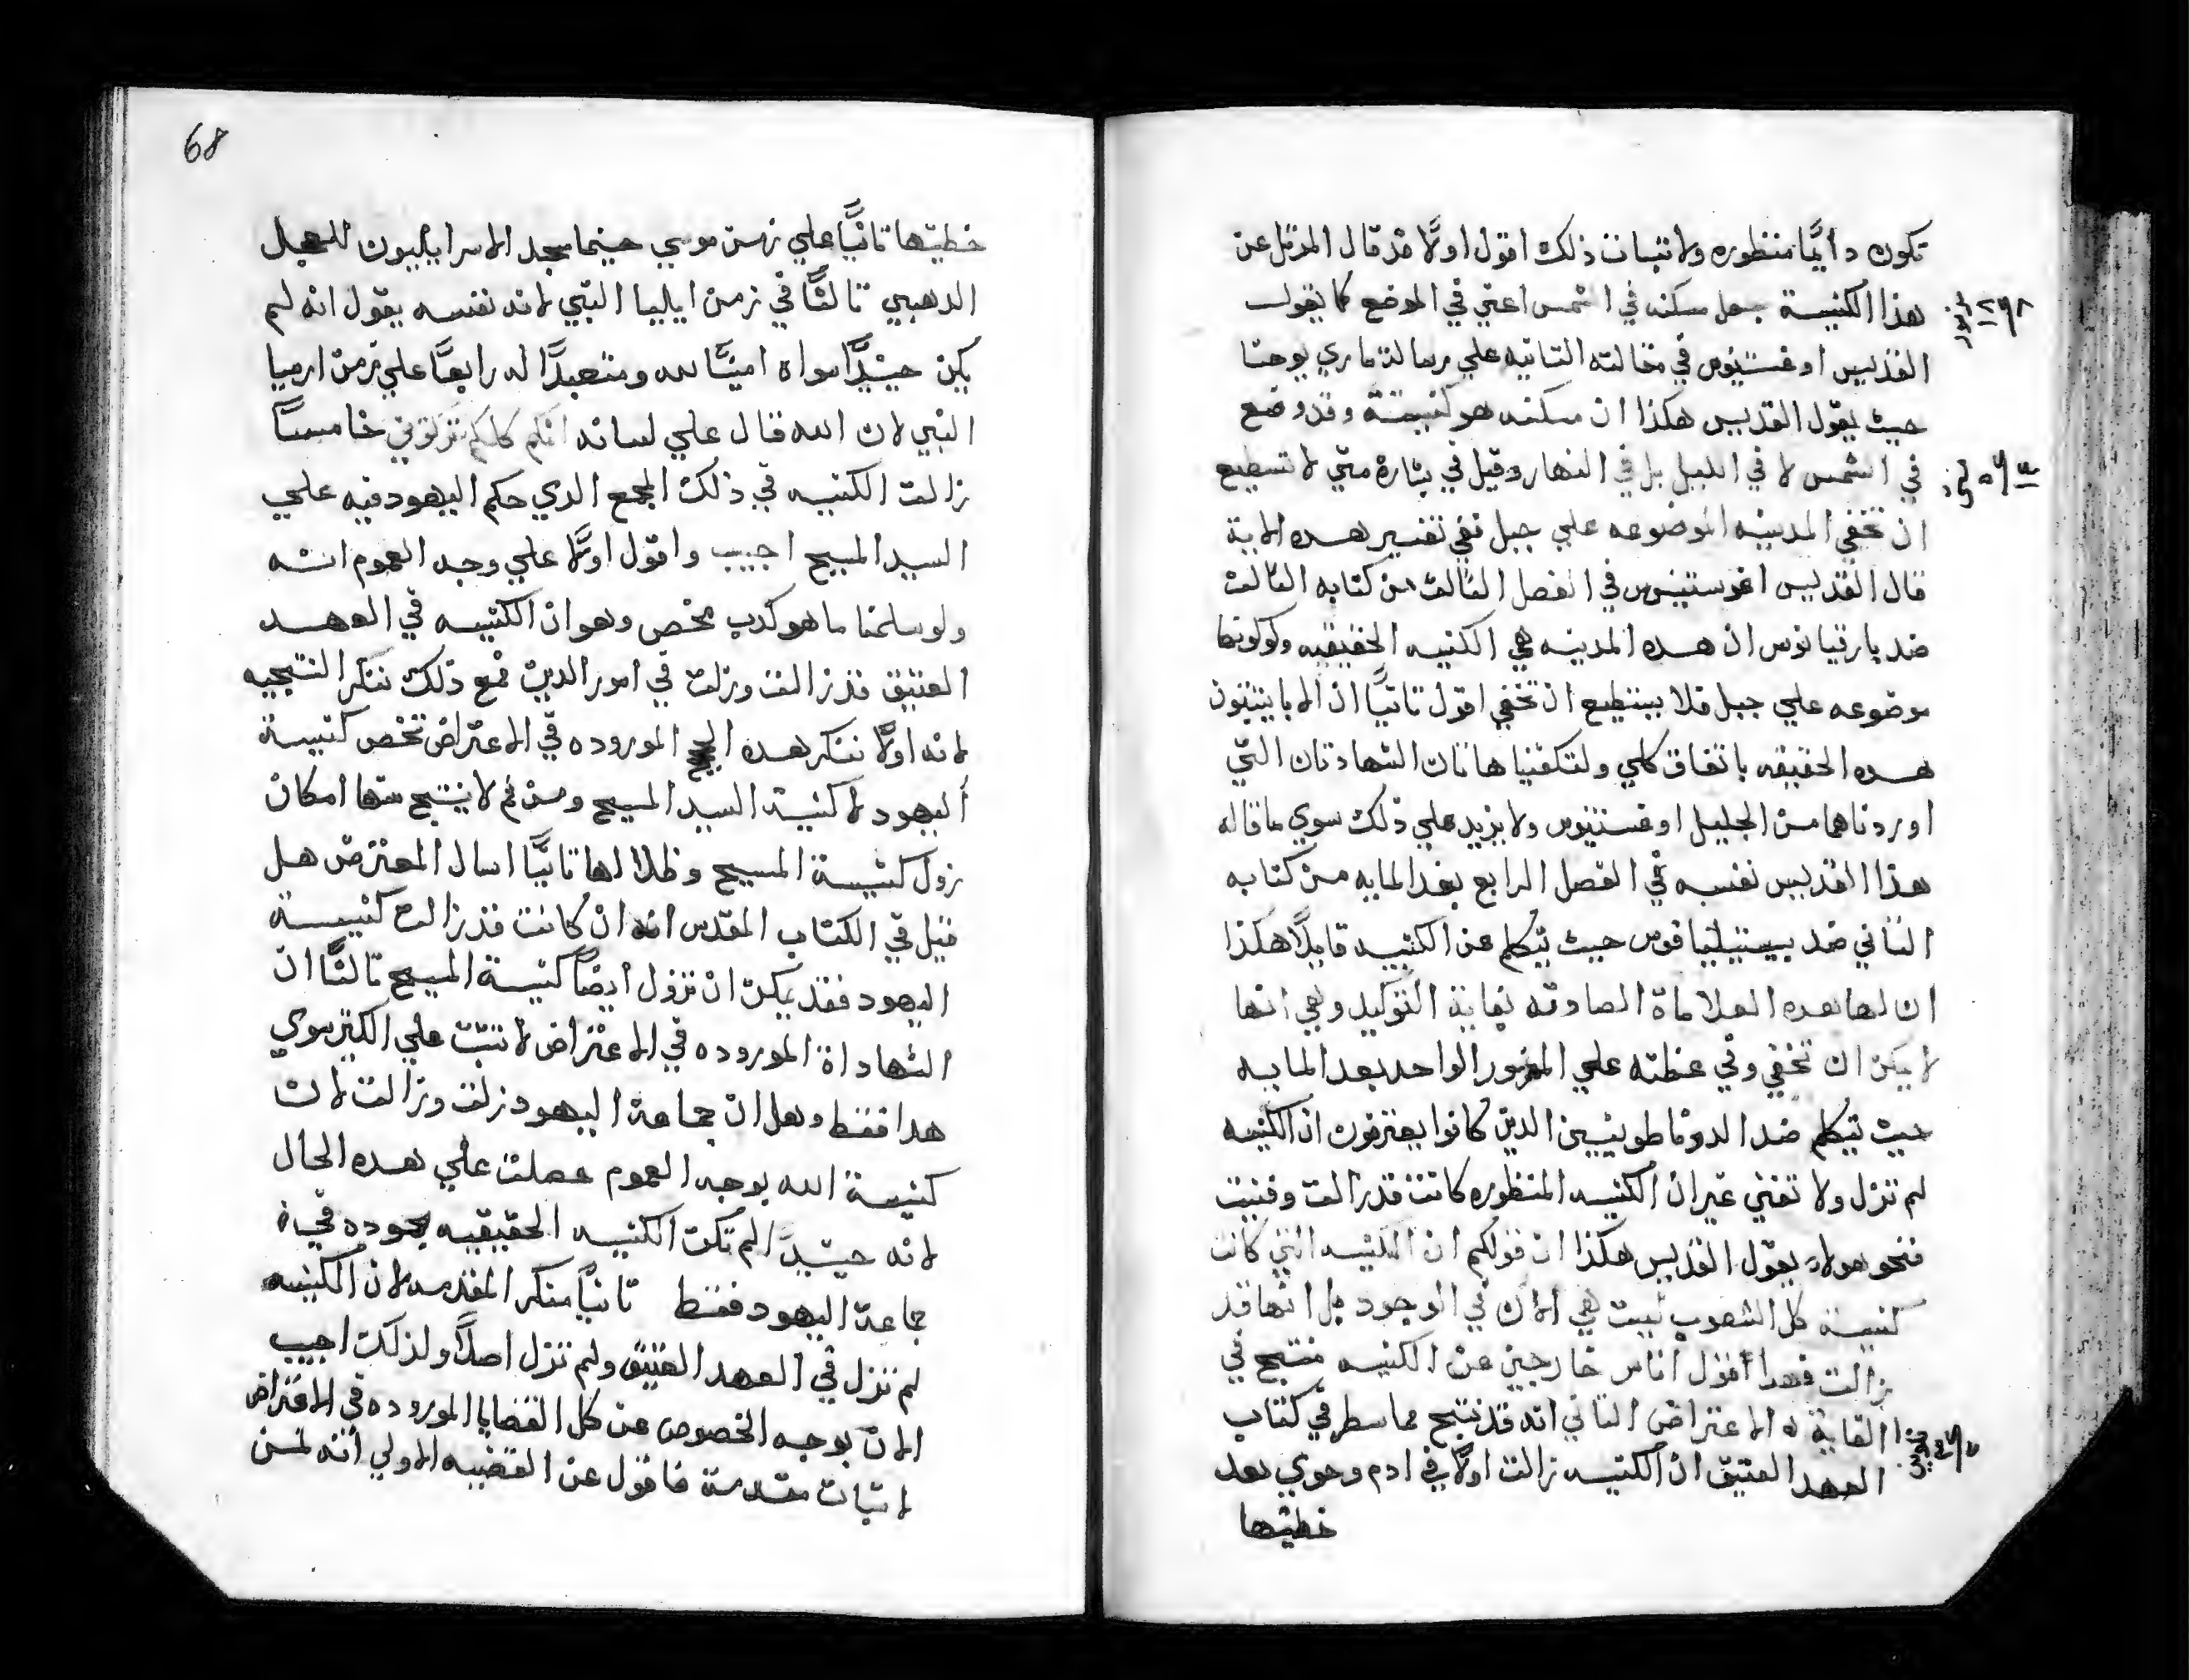 تكون دايمًا منظوره ولاتبات ذلك اقول اولًا قد قال المرتل عن
هذا الكنيسة جعل مسكنه في الشمس اعني في الموضع كما يقول
القديس اوغسطينوس في مقالته التانيه علي رسالة ماري يوحنا
حيث يقول القديس هكذا ان مسكنه هو كنيسته وقد وضع
في الشمس لا في الليل بل في النهار وقيل في بشارة متي لا تستطيع
ان تخفي المدينه الموضوعه علي جبل ففي تفسير هده الاية
قال القديس اغوستينوس في الفصل التالت من كتابه التالت
ضد بارمنيانوس ان هده المدينه هي الكنيسه الحقيقيه ولكونها
موضوعه علي جبل فلا يستطيع ان تخفي اقول تانيًا ان الابا يتبتون
هده الحقيقه باتفاق كلي ولتكفينا هاتان الشهادتان التي
اوردناهما من الجليل اوغستينوس ولا يزيد علي ذلك سوي ما قاله
هذا القديس نفسه في الفصل الرابع بعد المايه من كتابه
التاني ضد بيتيليانوس حيث يتكلم عن الكنيسه قايلًا هكذا
ان لها هده العلاماة الصادقه بغاية التوكيد وهي انها
لا يمكن ان تخفي وفي عظته علي المزمور الواحد بعد المايه
حيث يتكلم ضد الدوناطويسيين الدين كانوا يعترفون ان الكنيسه
لم تزل ولا تفني غير ان الكنيسه المنظوره كانت قد زالت وفنيت
فنحو هولاء يقول القديس هكذا ان قولكم ان الكنيسه التي كانت
كنيسة كل الشعوب ليست هي الان في الوجود بل انها قد
زالت فهدا اقول اناس خارجين عن الكنيسه متتبح في
القاية ه الاعتراض التاني انه قد نتبح مما سطر في كتاب
العهد العتيق ان الكنيسه زالت اولًا في ادم وحوي بعد
خطيتها
68
خطيتها تانيًا علي زمن موسي حينما سجد الاسراييليون للعجل
الدهبي تالتًا في زمن ايليا النبي لانه نفسه يقول انه لم
يكن حينيدًا سواه امينًا لله ومتعبدًا له رابعًا علي زمن ارميا
النبي لان الله قال علي لسانه انكم كلكم تتركوني خامسًا
زالت الكنيسه في ذلك المجمع الدي حكم اليهود فيه علي
السيد المسيح اجيب واقول اولًا علي وجه العموم انه
ولو سلمنا ما هو كدب محض وهو ان الكنيسه في العهد
العتيق قد زالت وزلت في امور الدين فمع ذلك ننكر النتيجيه
لانه اولًا ننكر هده الحجج الموروده في الاعتراض تخص كنيسة
اليهود لا كنيسة السيد المسيح ومن ثم لا ينتج منها امكان
زول كنيسة المسيح وظلالها تانيًا اسال المعترض هل
قيل في الكتاب المقدس انه ان كانت قد زالت كنيسة
اليهود فقد يمكن ان تزول ايضًا كنيسة المسيح تالتًا ان
الشهاداة الموروده في الاعتراض لا تتبت علي الكتير سوي
هدا فقط وهل ان جماعة اليهود زلت وزالت لان
كنيسة الله بوجه العموم حصلت علي هده الحال
لانه حينيدًا لم تكن الكنيسه الحقيقيه موجوده في
جماعة اليهود فقط تانيًا منكر المقدمه لان الكنيسه
لم تزل في العهد العتيق ولم تزل اصلًا ولذلك اجيب
الان بوجه الخصوص عن كل القضايا الموروده في الاعتراض
لاتبات مقدمته فاقول عن القضيه الاولي انه لمن